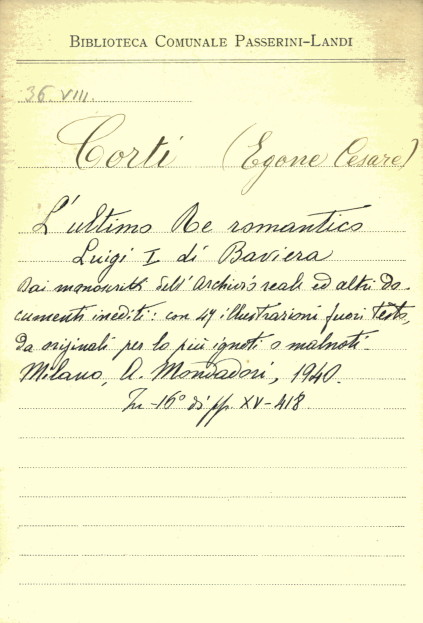 BIBLIOTECA COMUNALE PASSERINI-LANDI
36. VIII.
Corti (Egone Cesare)
L'ultimo Re romantico
Luigi I di Baviera
Dai manoscritti dell'Archivio reale ed altri do-
cumenti inediti: con 47 illustrazioni fuori testo,
da originali per lo più ignoti o malnoti.
Milano, A. Mondadori, 1940.
In-16° di pp. XV-418.